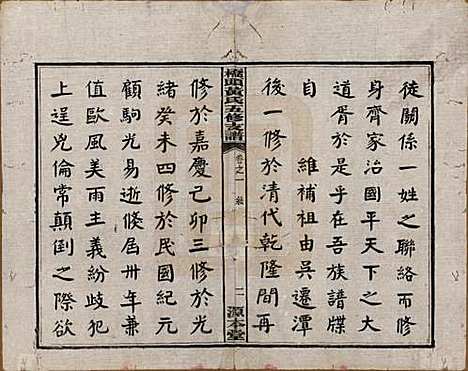 徒關係一姓之聯絡而修
身齊家治國平天下之大
道胥於是乎在吾族譜牒
自　維補祖由吳遷潭
後一修於清代乾隆間再
橋頭黃氏五修支譜
卷之一
二
源本堂
修於嘉慶己卯三修於光
緒癸未四修於民國紀元
顧駒光易逝倏屆卅年兼
值歐風美雨主義紛歧犯
上逞兇倫常顛倒之際欲